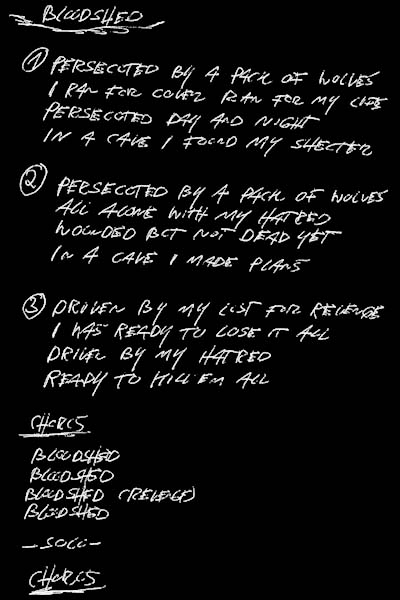 BLOODSHED
1 PERSECUTED BY A PACK OF WOLVES
I RAN FOR COVER RAN FOR MY LIFE
PERSECUTED DAY AND NIGHT
IN A CAVE I FOUND MY SHELTER
2 PERSECUTED BY A PACK OF WOLVES
ALL ALONE WITH MY HATRED
WOUNDED BUT NOT DEAD YET
IN A CAVE I MADE PLANS
3 DRIVEN BY MY LUST FOR REVENGE
I WAS READY TO LOSE IT ALL
DRIVEN BY MY HATRED
READY TO KILL EM ALL
CHORUS
BLOODSHED
BLOODSHED
BLOODSHED (REVENGE)
BLOODSHED
-SOLO-
CHORUS